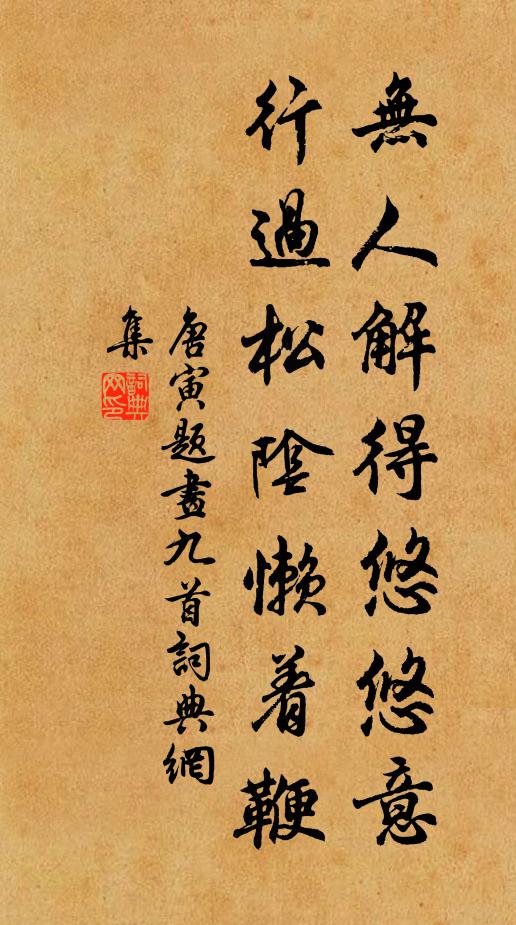 無人解得悠悠意
行過松陰懶着鞭
唐寅题畫九首詞典網
集
詞典
网印